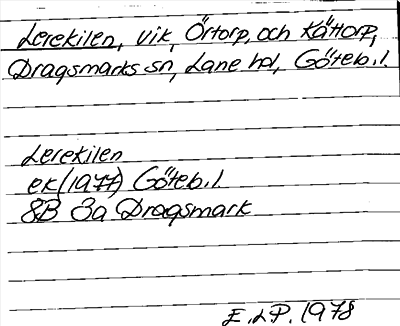 Lerekilen, vik, Örtorp, och Kättorp,
Dragsmarks sn, Lane hd, Göteb. l.
Lerekilen
ek (1977) Göteb. l.
8B 3a Dragsmark
E. L P. 1978